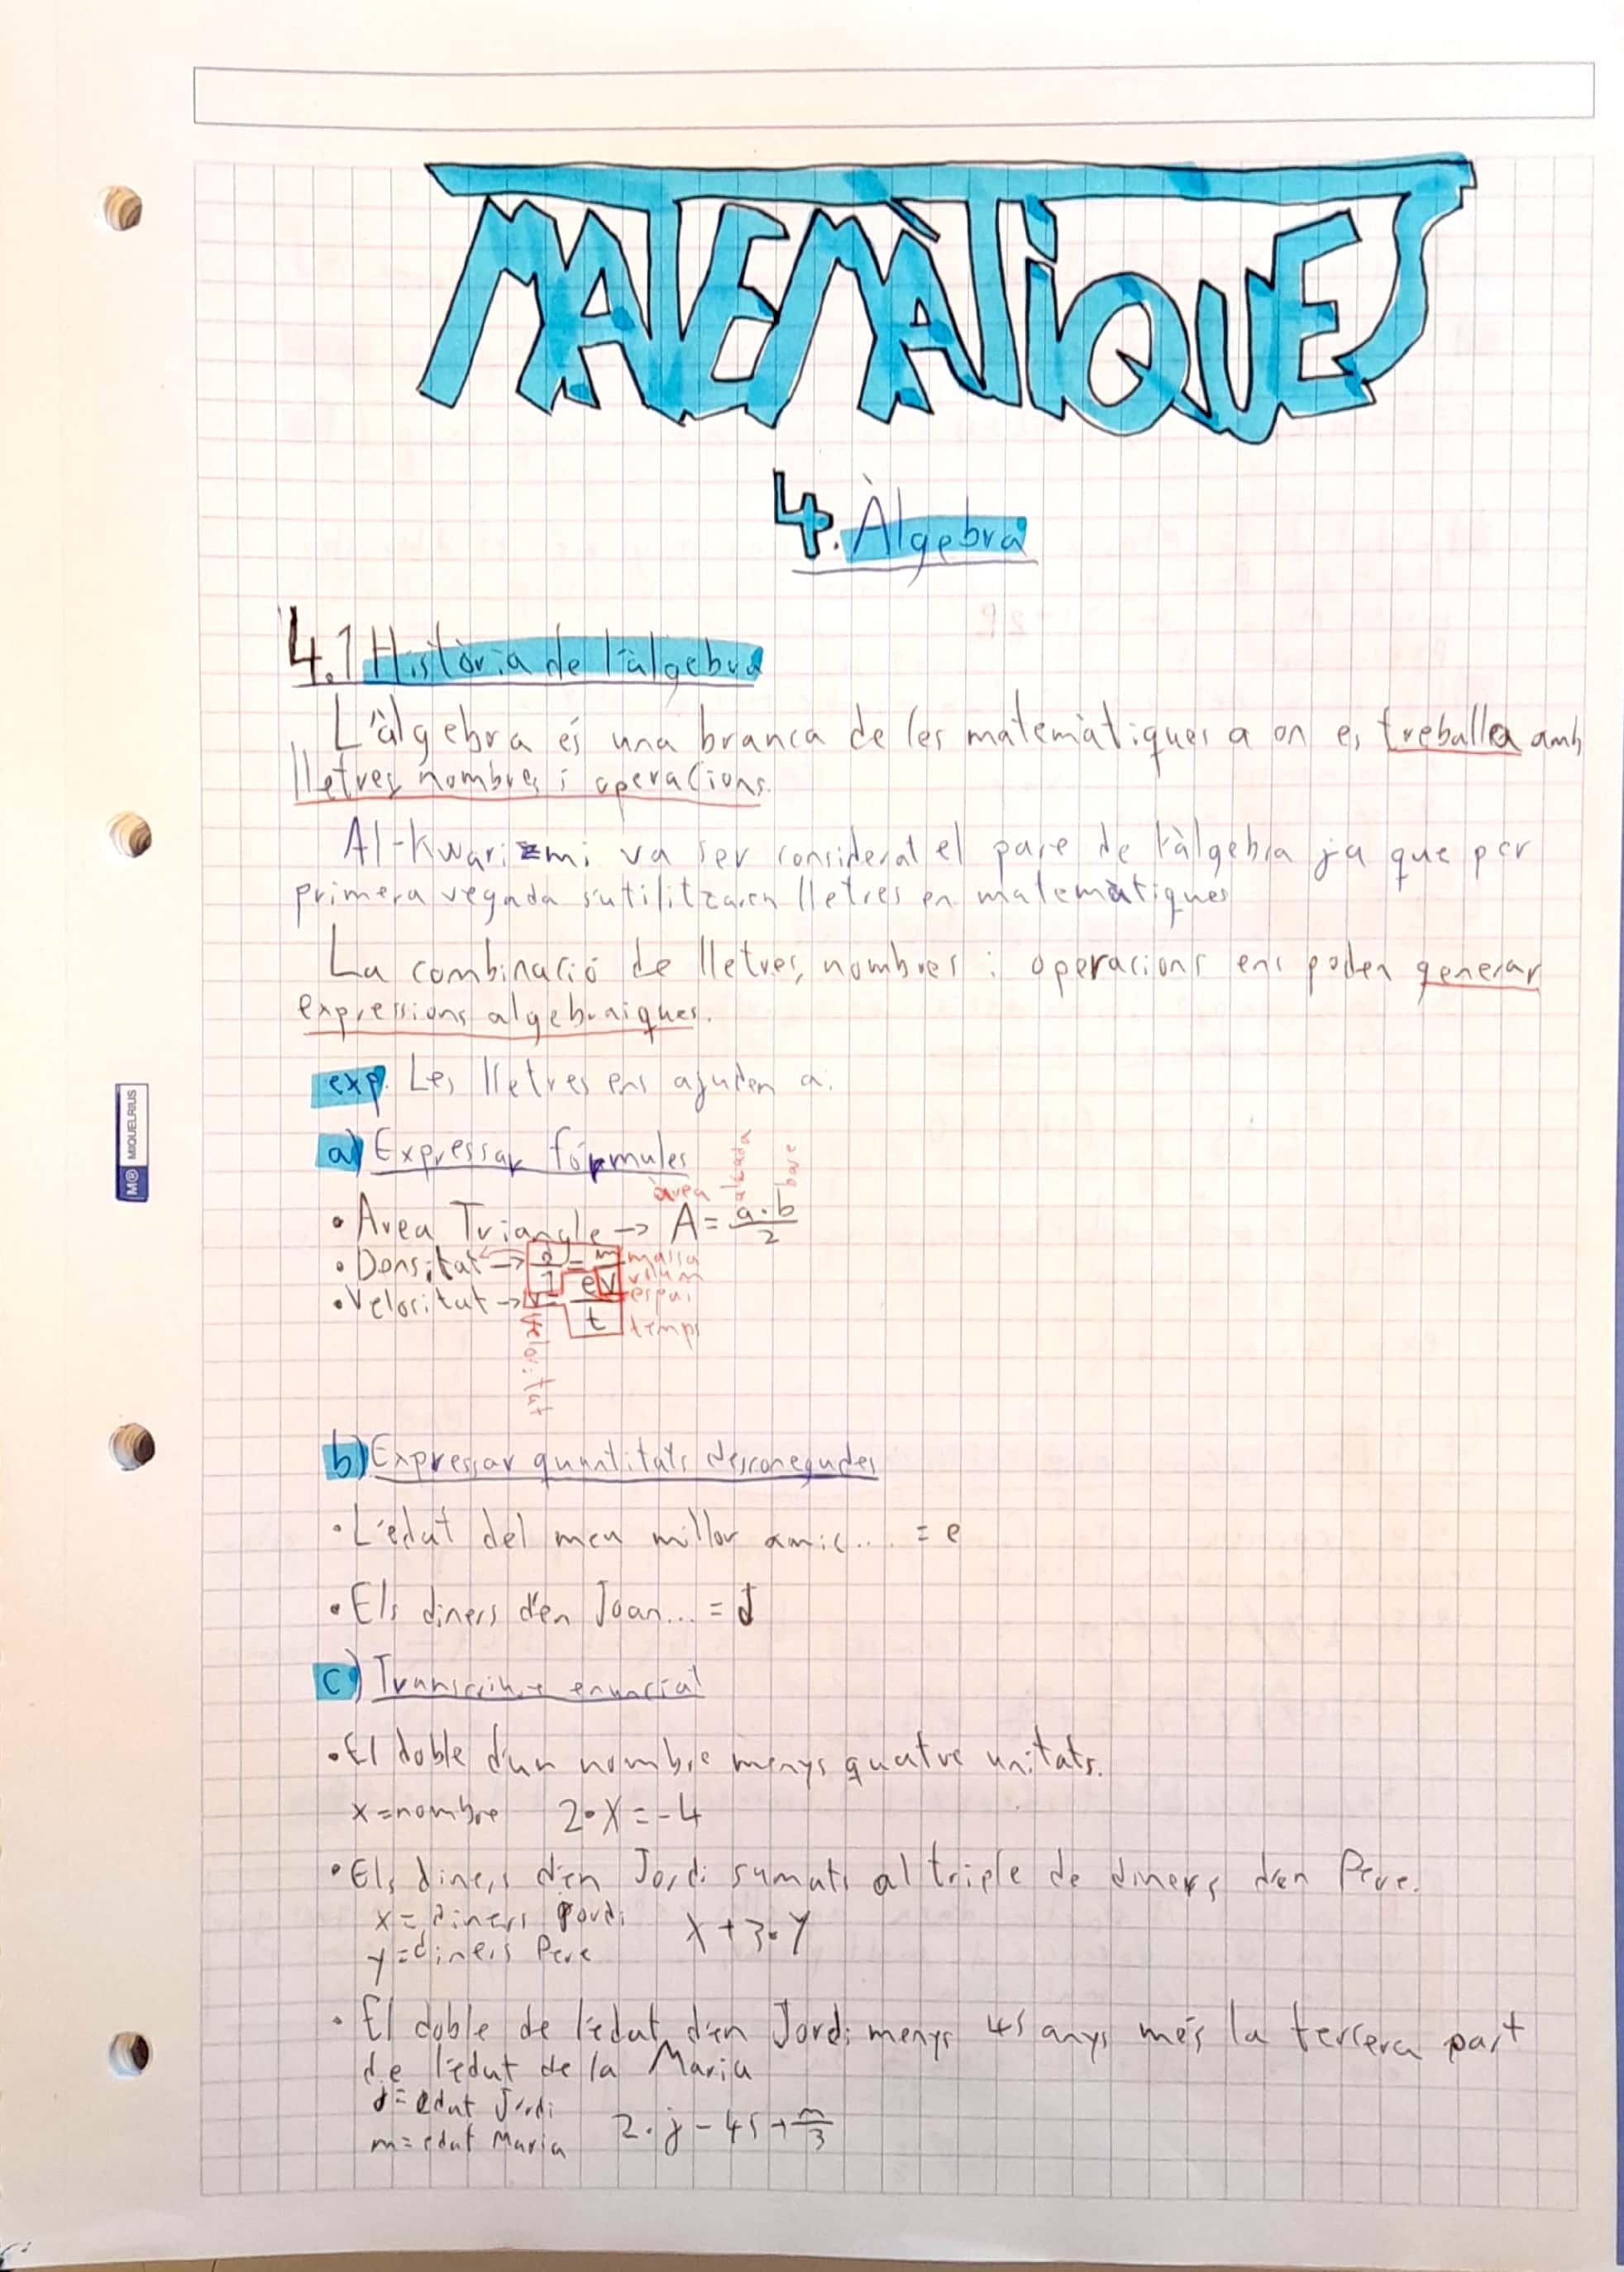 MATEMÀTIQUES
4. Àlgebra
4.1 Història de l'àlgebra
L'àlgebra és una branca de les matemàtiques a on es treballa amb
lletres nombres i operacions.
Al-Kwarizmi va ser considerat el pare de l'àlgebra ja que per
primera vegada s'utilitzaren lletres en matemàtiques
La combinació de lletres, nombres i operacions ens poden generar
expressions algebraiques.
exp. Les lletres ens ajuden a:
a) Expressar fórmules
àrea alçada base
• Area Triangle → A = a·b/2
• Densitat → d/1 = m/v massa volum
• Velocitat → v = e/t espai temps
velocitat
b) Expressar quantitats desconegudes
• L'edat del meu millor amic... = e
• Els diners d'en Joan... = d
c) Transcriure enunciat
• El doble d'un nombre menys quatre unitats.
x = nombre 2·X = -4
• Els diners d'en Jordi sumats al triple de diners d'en Pere.
x = diners Jordi X + 3·Y
y = diners Pere
• El doble de l'edat d'en Jordi menys 45 anys més la tercera part
de l'edat de la Maria
j = edat Jordi
m = edat Maria 2·j - 45 + m/3
M® MIQUELRIUS